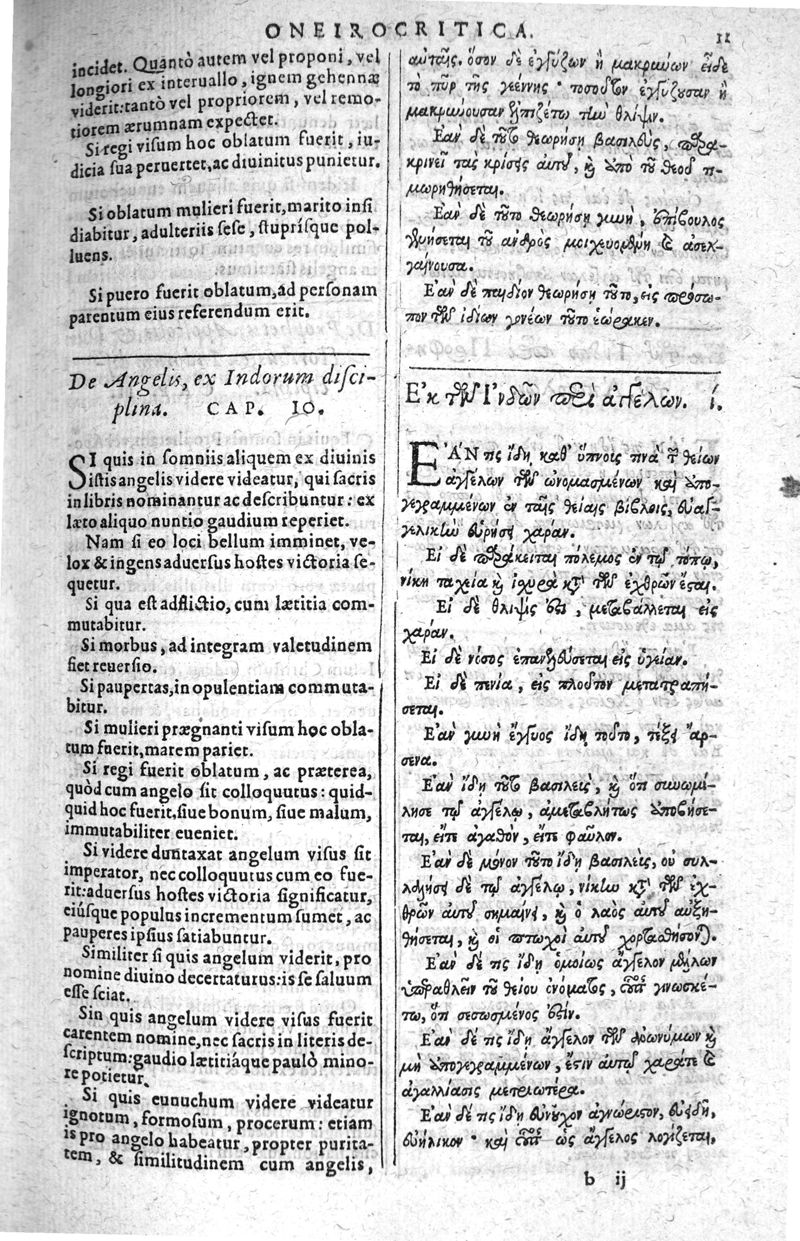 ONEIROCRITICA.
11
incidet. Quantò autem vel proponi, vel
longiori ex interuallo, ignem gehennæ
viderit: tantò vel propriorem, vel remo-
tiorem ærumnam expectet.
Si regi visum hoc oblatum fuerit, iu-
dicia sua peruertet, ac diuinitus punietur.
Si oblatum mulieri fuerit, marito insi
diabitur, adulteriis sese, stuprísque pol-
luens.
Si puero fuerit oblatum, ad personam
parentum eius referendum erit.
De Angelis, ex Indorum disci-
plina. CAP. 10.
SI quis in somniis aliquem ex diuinis
istis angelis videre videatur, qui sacris
in libris nominantur ac describuntur: ex
læto aliquo nuntio gaudium reperiet.
Nam si eo loci bellum imminet, ve-
lox & ingens aduersus hostes victoria se-
quetur.
Si qua est adflictio, cum lætitia com-
mutabitur.
Si morbus, ad integram valetudinem
fiet reuersio.
Si paupertas, in opulentiam commuta-
bitur.
Si mulieri prægnanti visum hoc obla-
tum fuerit, marem pariet.
Si regi fuerit oblatum, ac præterea,
quòd cum angelo sit colloquutus: quid-
quid hoc fuerit, siue bonum, siue malum,
immutabiliter eueniet.
Si videre duntaxat angelum visus sit
imperator, nec colloquutus cum eo fue-
rit: aduersus hostes victoria significatur,
eiúsque populus incrementum sumet, ac
pauperes ipsius satiabuntur.
Similiter si quis angelum viderit, pro
nomine diuino decertaturus: is se saluum
esse sciat.
Sin quis angelum videre visus fuerit
carentem nomine, nec sacris in literis de-
scriptum: gaudio lætitiáque paulò mino-
re potietur.
Si quis eunuchum videre videatur
ignotum, formosum, procerum: etiam
is pro angelo habeatur, propter purita-
tem, & similitudinem cum angelis,
αὐταῖς. ὅσον δὲ ἐγγύζων ἢ μακρύων εἶδε
τὸ πῦρ τῆς γεέννης· τοσοῦτον ἐγγύζουσαν ἢ
μακρύουσαν ἐλπιζέτω τὴν θλίψιν.
Ἐὰν δὲ τοῦτο θεωρήσῃ βασιλεὺς, παρα-
κρινεῖ τὰς κρίσεις αὐτοῦ, καὶ ὑπὸ τοῦ θεοῦ τι-
μωρηθήσεται.
Ἐὰν δὲ τοῦτο θεωρήσῃ γυνὴ, ἐπίβουλος
γενήσεται τοῦ ἀνδρὸς μοιχευομένη καὶ ἀσελ-
γαίνουσα.
Ἐὰν δὲ παιδίον θεωρήσῃ τοῦτο, εἰς πρόσω-
πον τῶν ἰδίων γονέων τοῦτο ἑώρακεν.
Ἐκ τῶν Ἰνδῶν περὶ ἀγγέλων. ί.
ἘΆΝ τις ἴδῃ καθ' ὕπνοις τινὰ τῶν θείων
ἀγγέλων τῶν ὠνομασμένων καὶ ὑπο-
γεγραμμένων ἐν ταῖς θείαις βίβλοις, εὐαγ-
γελικὴν εὑρήσει χαράν.
Εἰ δὲ παράκειται πόλεμος ἐν τῷ τόπῳ,
νίκη ταχεῖα καὶ ἰσχυρὰ κατὰ τῶν ἐχθρῶν ἔσται.
Εἰ δὲ θλίψις ἐστὶ, μεταβάλλεται εἰς
χαράν.
Εἰ δὲ νόσος ἐπανελεύσεται εἰς ὑγίειαν.
Εἰ δὲ πενία, εἰς πλοῦτον μετατραπή-
σεται.
Ἐὰν γυνὴ ἔγγυος ἴδῃ τοῦτο, τέξει ἄρ-
σενα.
Ἐὰν ἴδῃ τοῦτο βασιλεὺς, καὶ ὅτι συνωμί-
λησε τῷ ἀγγέλῳ, ἀμεταβλήτως ἀποβήσε-
ται, εἴτε ἀγαθὸν, εἴτε φαῦλον.
Ἐὰν δὲ μόνον τοῦτο ἴδῃ βασιλεὺς, οὐ συλ-
λαλήσει δὲ τῷ ἀγγέλῳ, νίκην κατὰ τῶν ἐχ-
θρῶν αὐτοῦ σημαίνει, καὶ ὁ λαὸς αὐτοῦ αὐξη-
θήσεται, καὶ οἱ πτωχοὶ αὐτοῦ χορτασθήσονται.
Ἐὰν δέ τις ἴδῃ ὁμοίως ἄγγελον μέλλων
ὑπεραθλεῖν τοῦ θείου ὀνόματος, οὗτος γινωσκέ-
τω, ὅτι σεσωσμένος ἐστίν.
Ἐὰν δέ τις ἴδῃ ἄγγελον τῶν ἀνωνύμων καὶ
μὴ ὑπογεγραμμένων, ἔστιν αὐτῷ χαρά τε καὶ
ἀγαλλίασις μετριωτέρα.
Ἐὰν δέ τις ἴδῃ εὐνοῦχον ἀγνώριστον, εὐειδῆ,
εὐήλικον· καὶ οὗτος ὡς ἄγγελος λογίζεται,
b ij